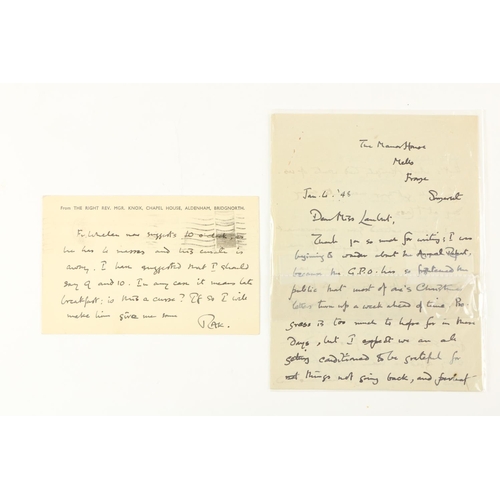 From THE RIGHT REV. MGR. KNOX, CHAPEL HOUSE, ALDENHAM, BRIDGNORTH.
Fr Whelan now suggests 10 o'clock
he has 6 masses and his curate is
away. I have suggested that I should
say 9 and 10. In any case it means late
breakfast: is this a curse? If so I will
make him give me some
RAK.
The Manor House
Mells
Frome
Somerset
Jan. 6. '46
Dear Miss Lambert,
Thank you so much for writing; I was
beginning to wonder about the Appeal
because the G.P.O. has so the
public that most of one's Christmas
letters turn up a week ahead of time. Pro-
gress is too much to hope for in these
Days, but I expect we are all
getting conditioned to be grateful for
things not going back, and